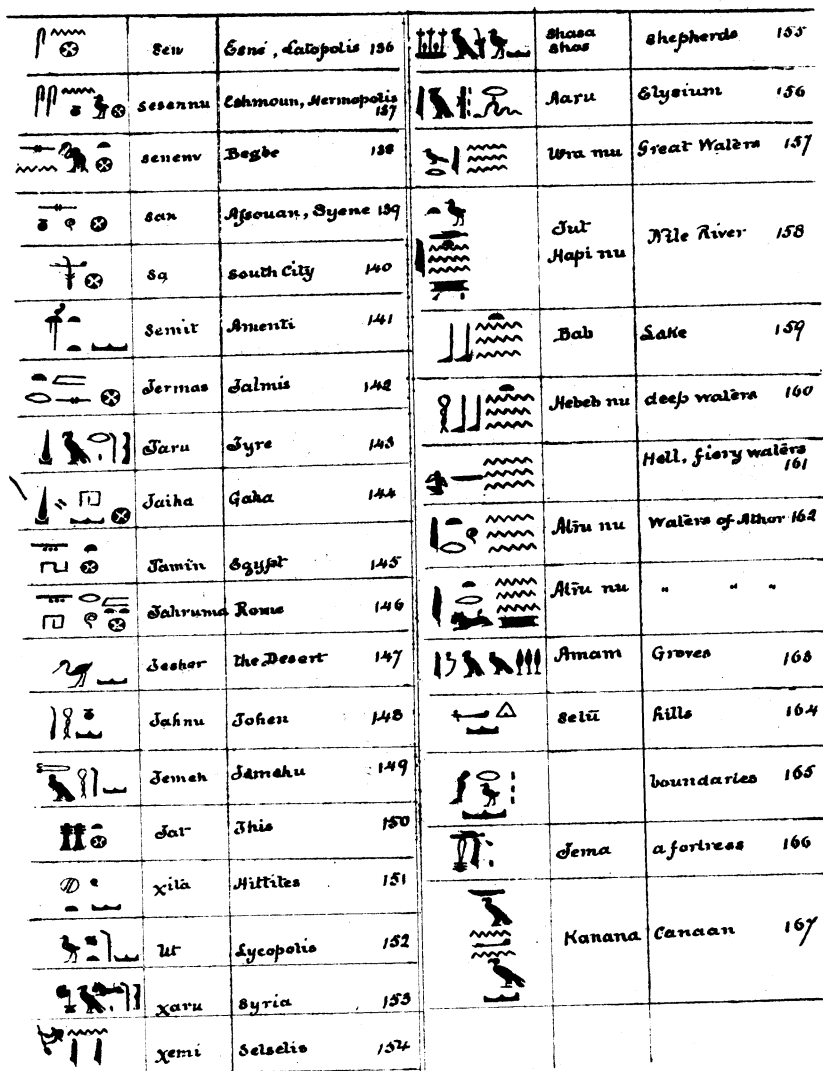 sen Esné, Latopolis 136
sesennu Eshmoun, Hermopolis
137
senenv Begbe 138
san Assouan, Syene 139
sa South City 140
Semit Amenti 141
Termas Talmis 142
Taru Tyre 143
Taiha Gaha 144
Tamin Egypt 145
Tahruma Rome 146
Tesher the Desert 147
Tahnu Tohen 148
Temeh Tamahu 149
Tat This 150
xita Hittites 151
Ut Lycopolis 152
xaru Syria 153
xemi Selselis 154
Shasa
Shas
Shepherds 155
Aaru Elysium 156
Wra mu Great Waters 157
Tut
Hapi nu
Nile River 158
Bab Lake 159
Hebeb nu deep waters 160
Hell, fiery waters
161
Atru nu Waters of Athor 162
Atru nu " " "
Amam Groves 163
Setu hills 164
boundaries 165
Tema a fortress 166
Kanana Canaan 167